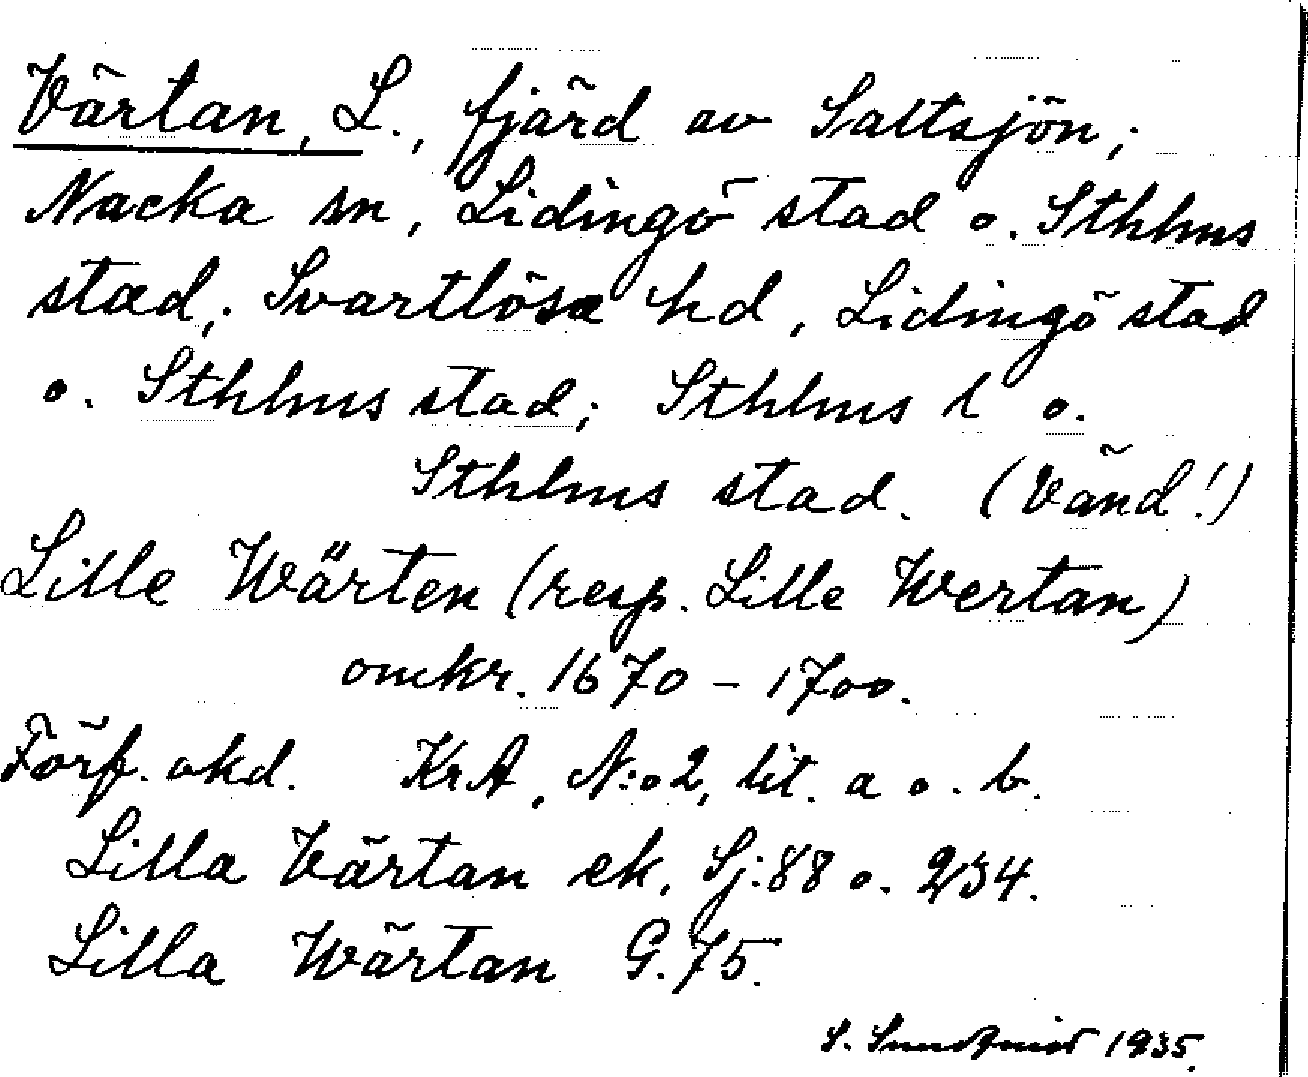 Värtan, L., fjärd av Saltsjön;
Nacka sn, Lidingö stad o. Sthlms
stad; Svartlösa hd, Lidingö stad
o. Sthlms stad; Sthlms l o.
Sthlms stad. (Vänd!)
Lille Wärten (resp. Lille Wertan)
omkr. 1670 - 1700.
Förf. okd. KrA, N:o 2, lit. a o. b.
Lilla Värtan ek. Sj: 88 o. 234.
Lilla Wärtan G. 75.
S. Sundqvist 1935.